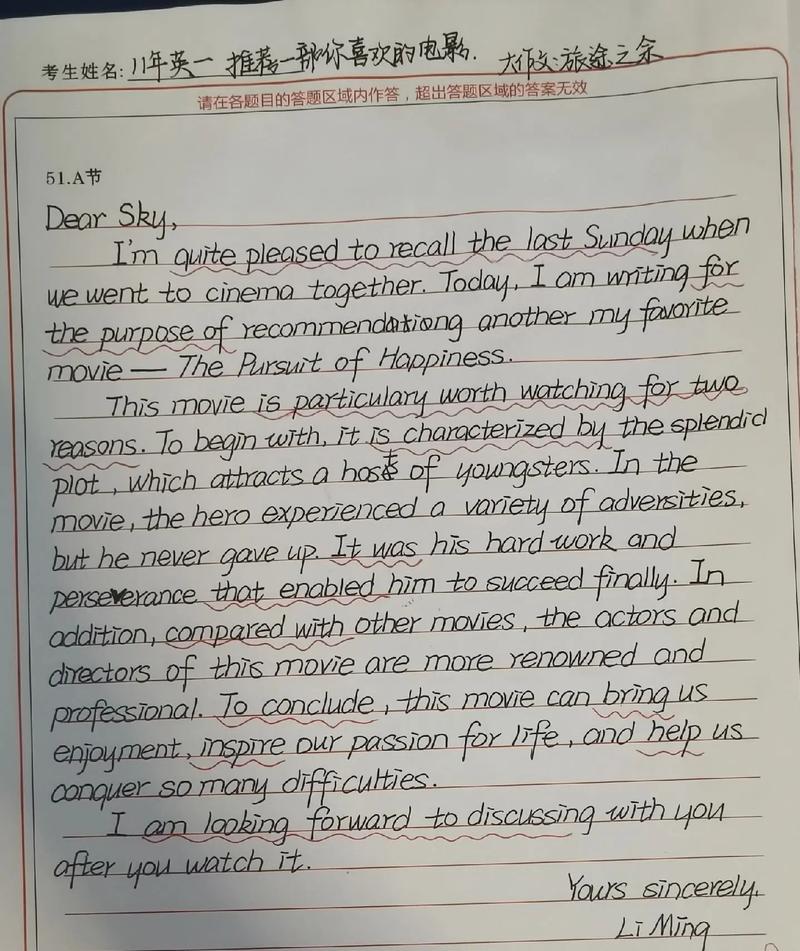 考生姓名: 11年英一 推荐一部你喜欢的电影. 大作文:旅途之余
请在各题目的答题区域内作答，超出答题区域的答案无效
51.A节
Dear Sky,
I'm quite pleased to recall the last Sunday when
we went to cinema together. Today, I am writing for
the purpose of recommendationg another my favorite
movie — The Pursuit of Happiness.
This movie is particulary worth watching for two
reasons. To begin with, it is characterized by the splendid
plot, which attracts a host of youngsters. In the
movie, the hero experienced a variety of adversities,
but he never gave up. It was his hard work and
perseverance that enabled him to succeed finally. In
addition, compared with other movies, the actors and
directors of this movie are more renowned and
professional. To conclude, this movie can bring us
enjoyment, inspire our passion for life, and help us
conquer so many difficulties.
I am looking forward to discussing with you
after you watch it.
Yours sincerely,
Li Ming